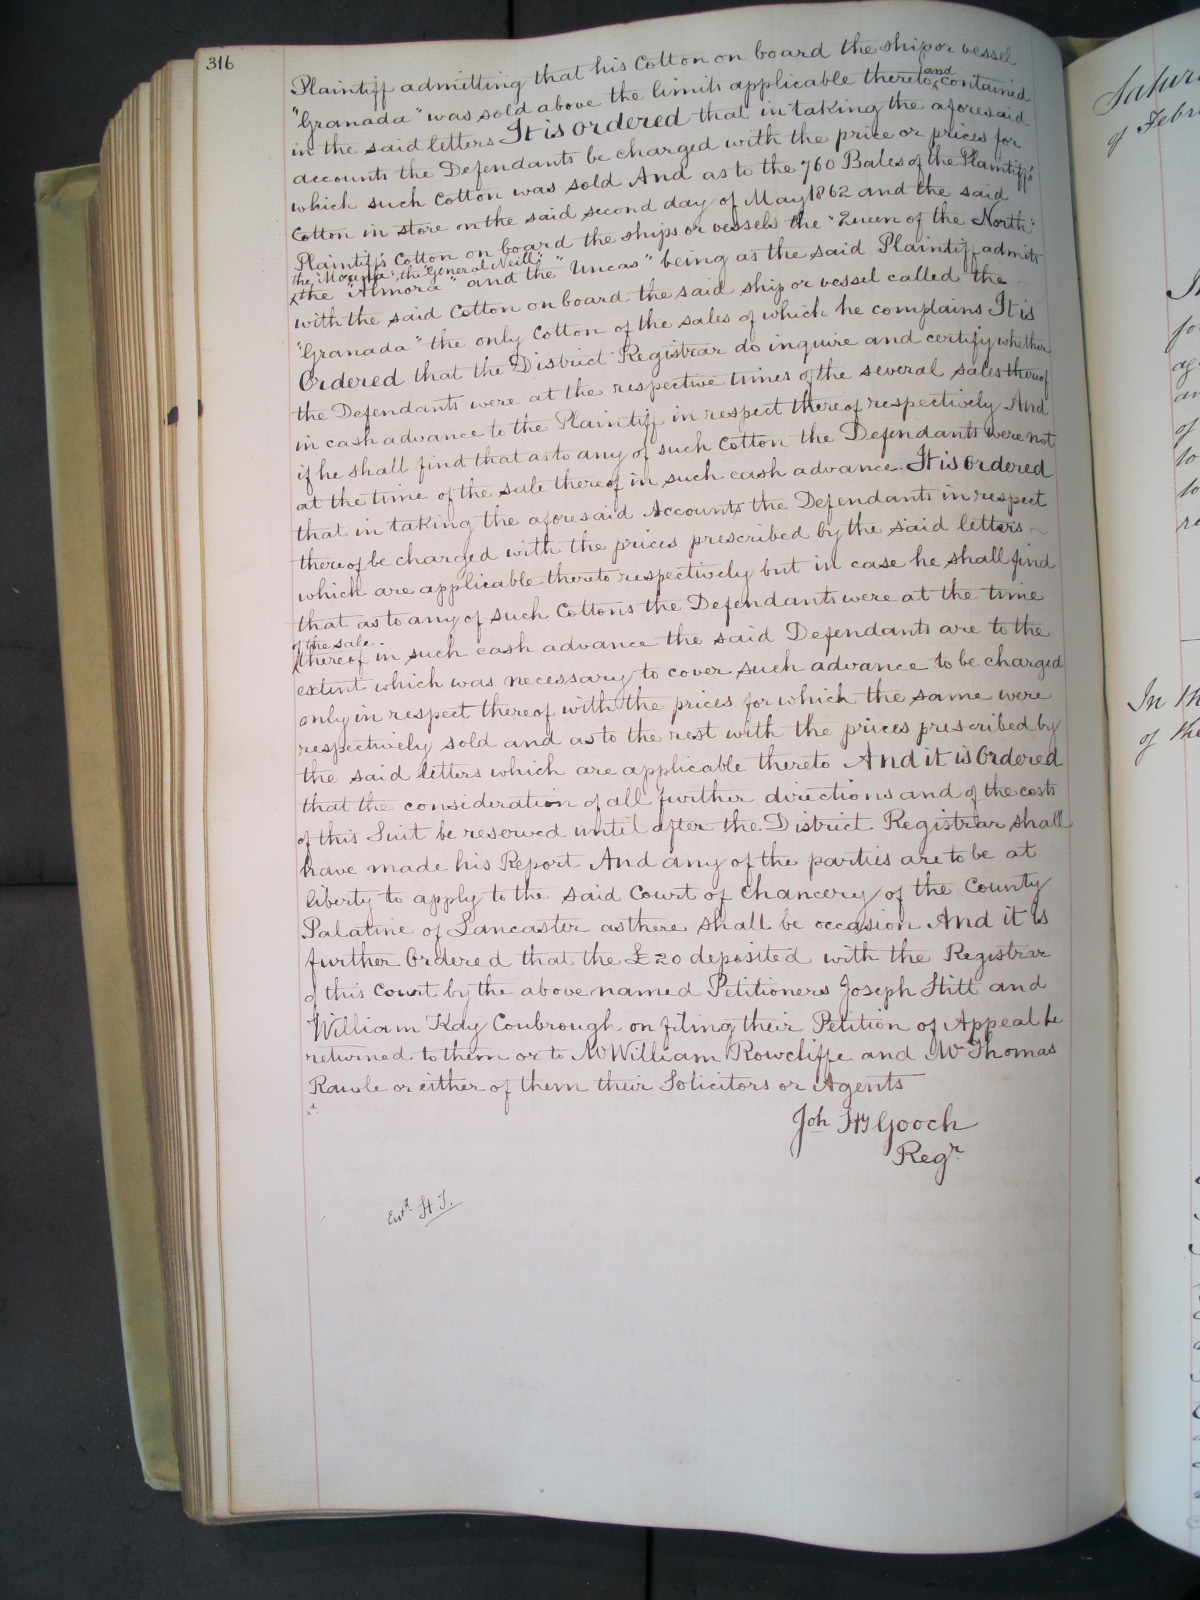 316
Plaintiff admitting that his Cotton on board the ship or vessel
"Granada" was sold above the limits applicable thereto and contained
in the said letters It is ordered that in taking the aforesaid
accounts the Defendants be charged with the price or prices for
which such Cotton was sold And as to the 760 Bales of the Plaintiffs'
Cotton in store on the said second day of May 1862 and the said
Plaintiffs Cotton on board the ships or vessels the "Queen of the North"
the "Mocuna", the "General Neill"
the "Almora" and the "Uncas" being as the said Plaintiff admits
with the said Cotton on board the said ship or vessel called the
"Granada" the only Cotton of the sales of which he complains It is
Ordered that the District Registrar do inquire and certify whether
the Defendants were at the respective times of the several sales thereof
in cash advance to the Plaintiff in respect thereof respectively And
if he shall find that as to any of such Cotton the Defendants were not
at the time of the sale thereof in such cash advance. It is ordered
that in taking the aforesaid Accounts the Defendants in respect
thereof be charged with the prices prescribed by the said letters
which are applicable thereto respectively but in case he shall find
that as to any of such Cottons the Defendants were at the time
of the sale
thereof in such cash advance the said Defendants are to the
extent which was necessary to cover such advance to be charged
only in respect thereof with the prices for which the same were
respectively sold and as to the rest with the prices prescribed by
the said letters which are applicable thereto And it is Ordered
that the consideration of all further directions and of the costs
of this Suit be reserved until after the District Registrar shall
have made his Report And any of the parties are to be at
liberty to apply to the said Court of Chancery of the County
Palatine of Lancaster as there shall be occasion And it is
further Ordered that the £20 deposited with the Registrar
of this Court by the above named Petitioners Joseph Stitt and
William Kay Coubrough on filing their Petition of Appeal be
returned to them or to Mr William Rowcliffe and Mr Thomas
Rawle or either of them their Solicitors or Agents
Joh Hy Gooch
Regr.
Entd. H.T.
Satur
of Febr
In th
of the